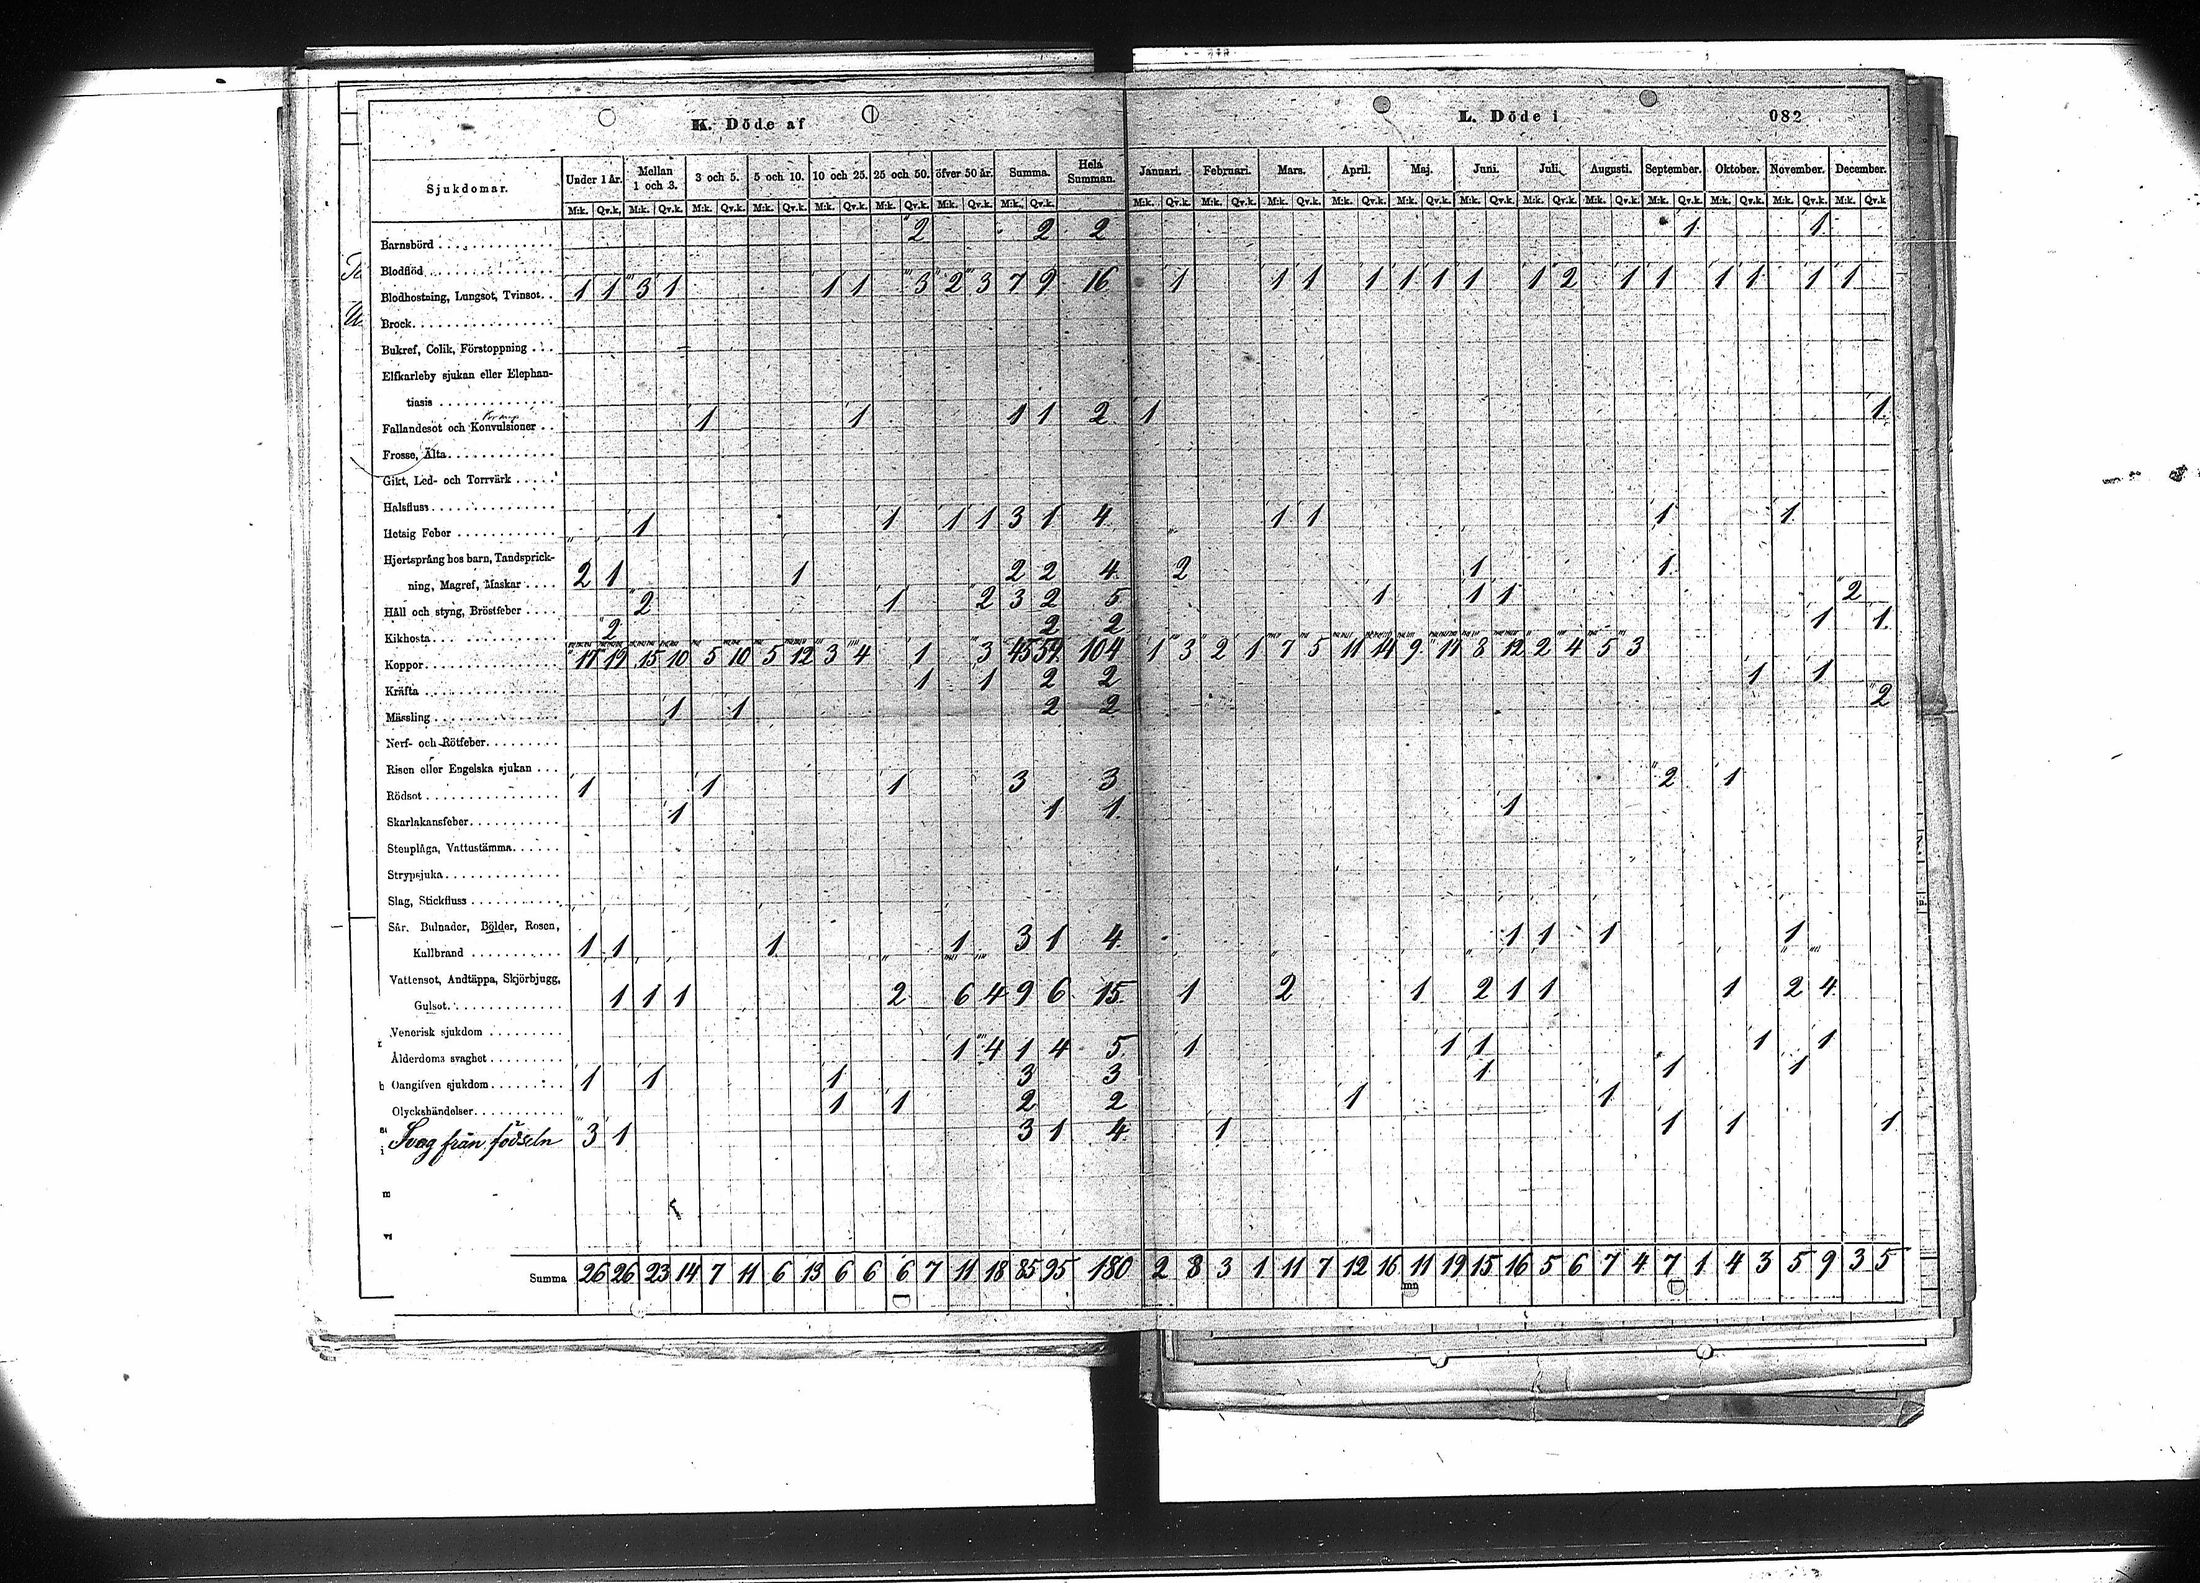 K. Döde af
L. Döde i
082
Sjukdomar. Under 1 år. Mellan 1 och 3. 3 och 5. 5 och 10. 10 och 25. 25 och 50. öfver 50 år. Summa. Hela Summan. Januari. Februari. Mars. April. Maj. Juni. Juli. Augusti. September. Oktober. November. December.
M:k. Qv.k. M:k. Qv.k. M:k. Qv.k. M:k. Qv.k. M:k. Qv.k. M:k. Qv.k. M:k. Qv.k. M:k. Qv.k. M:k. Qv.k. M:k. Qv.k. M:k. Qv.k. M:k. Qv.k. M:k. Qv.k. M:k. Qv.k. M:k. Qv.k. M:k. Qv.k. M:k. Qv.k. M:k. Qv.k. M:k. Qv.k. M:k. Qv.k
Barnsbörd 2 2 2 1 1
Blodflöd
Blodhostning, Lungsot, Tvinsot. 1 1 3 1 1 1 3 2 3 7 9 16 1 1 1 1 1 1 1 1 1 2 1 1 1 1 1 1
Brock
Bukref, Colik, Förstoppning
Elfkarleby sjukan eller Elephan-
tiasis
Fallandesot och Konvulsioner 1 1 1 1 2 1 1
Frosse, Älta
Gikt, Led- och Torrvärk
Halsfluss
Hetsig Feber 1 1 1 1 3 1 4 1 1 1 1
Hjertsprång hos barn, Tandsprick-
ning, Magref, Maskar 2 1 1 2 2 4 2 1 1
Håll och styng, Bröstfeber 2 1 2 3 2 5 1 1 1 2
Kikhosta 2 2 2 1 1
Koppor 17 19 15 10 5 10 5 12 3 4 1 3 45 59 104 1 3 2 1 7 5 11 14 9 17 8 12 2 4 5 3
Kräfta 1 1 2 2 1 1
Mässling 1 1 2 2 2
Nerf- och Rötfeber
Risen eller Engelska sjukan
Rödsot 1 1 1 3 3 2 1
Skarlakansfeber 1 1 1 1
Stenplåga, Vattustämma
Strypsjuka
Slag, Stickfluss
Sår, Bulnader, Bölder, Rosen,
Kallbrand 1 1 1 1 3 1 4 1 1 1 1
Vattensot, Andtäppa, Skjörbjugg,
Gulsot 1 1 1 2 6 4 9 6 15 1 2 1 2 1 1 1 2 4
Venerisk sjukdom
Ålderdoms svaghet 1 4 1 4 5 1 1 1 1 1
Oangifven sjukdom 1 1 1 3 3 1 1 1
Olyckshändelser 1 1 2 2 1 1
Svag från födseln 3 1 3 1 4 1 1 1 1
Summa 26 26 23 14 7 11 6 13 6 6 6 7 11 18 85 95 180 2 8 3 1 11 7 12 16 11 19 15 16 5 6 7 4 7 1 4 3 5 9 3 5